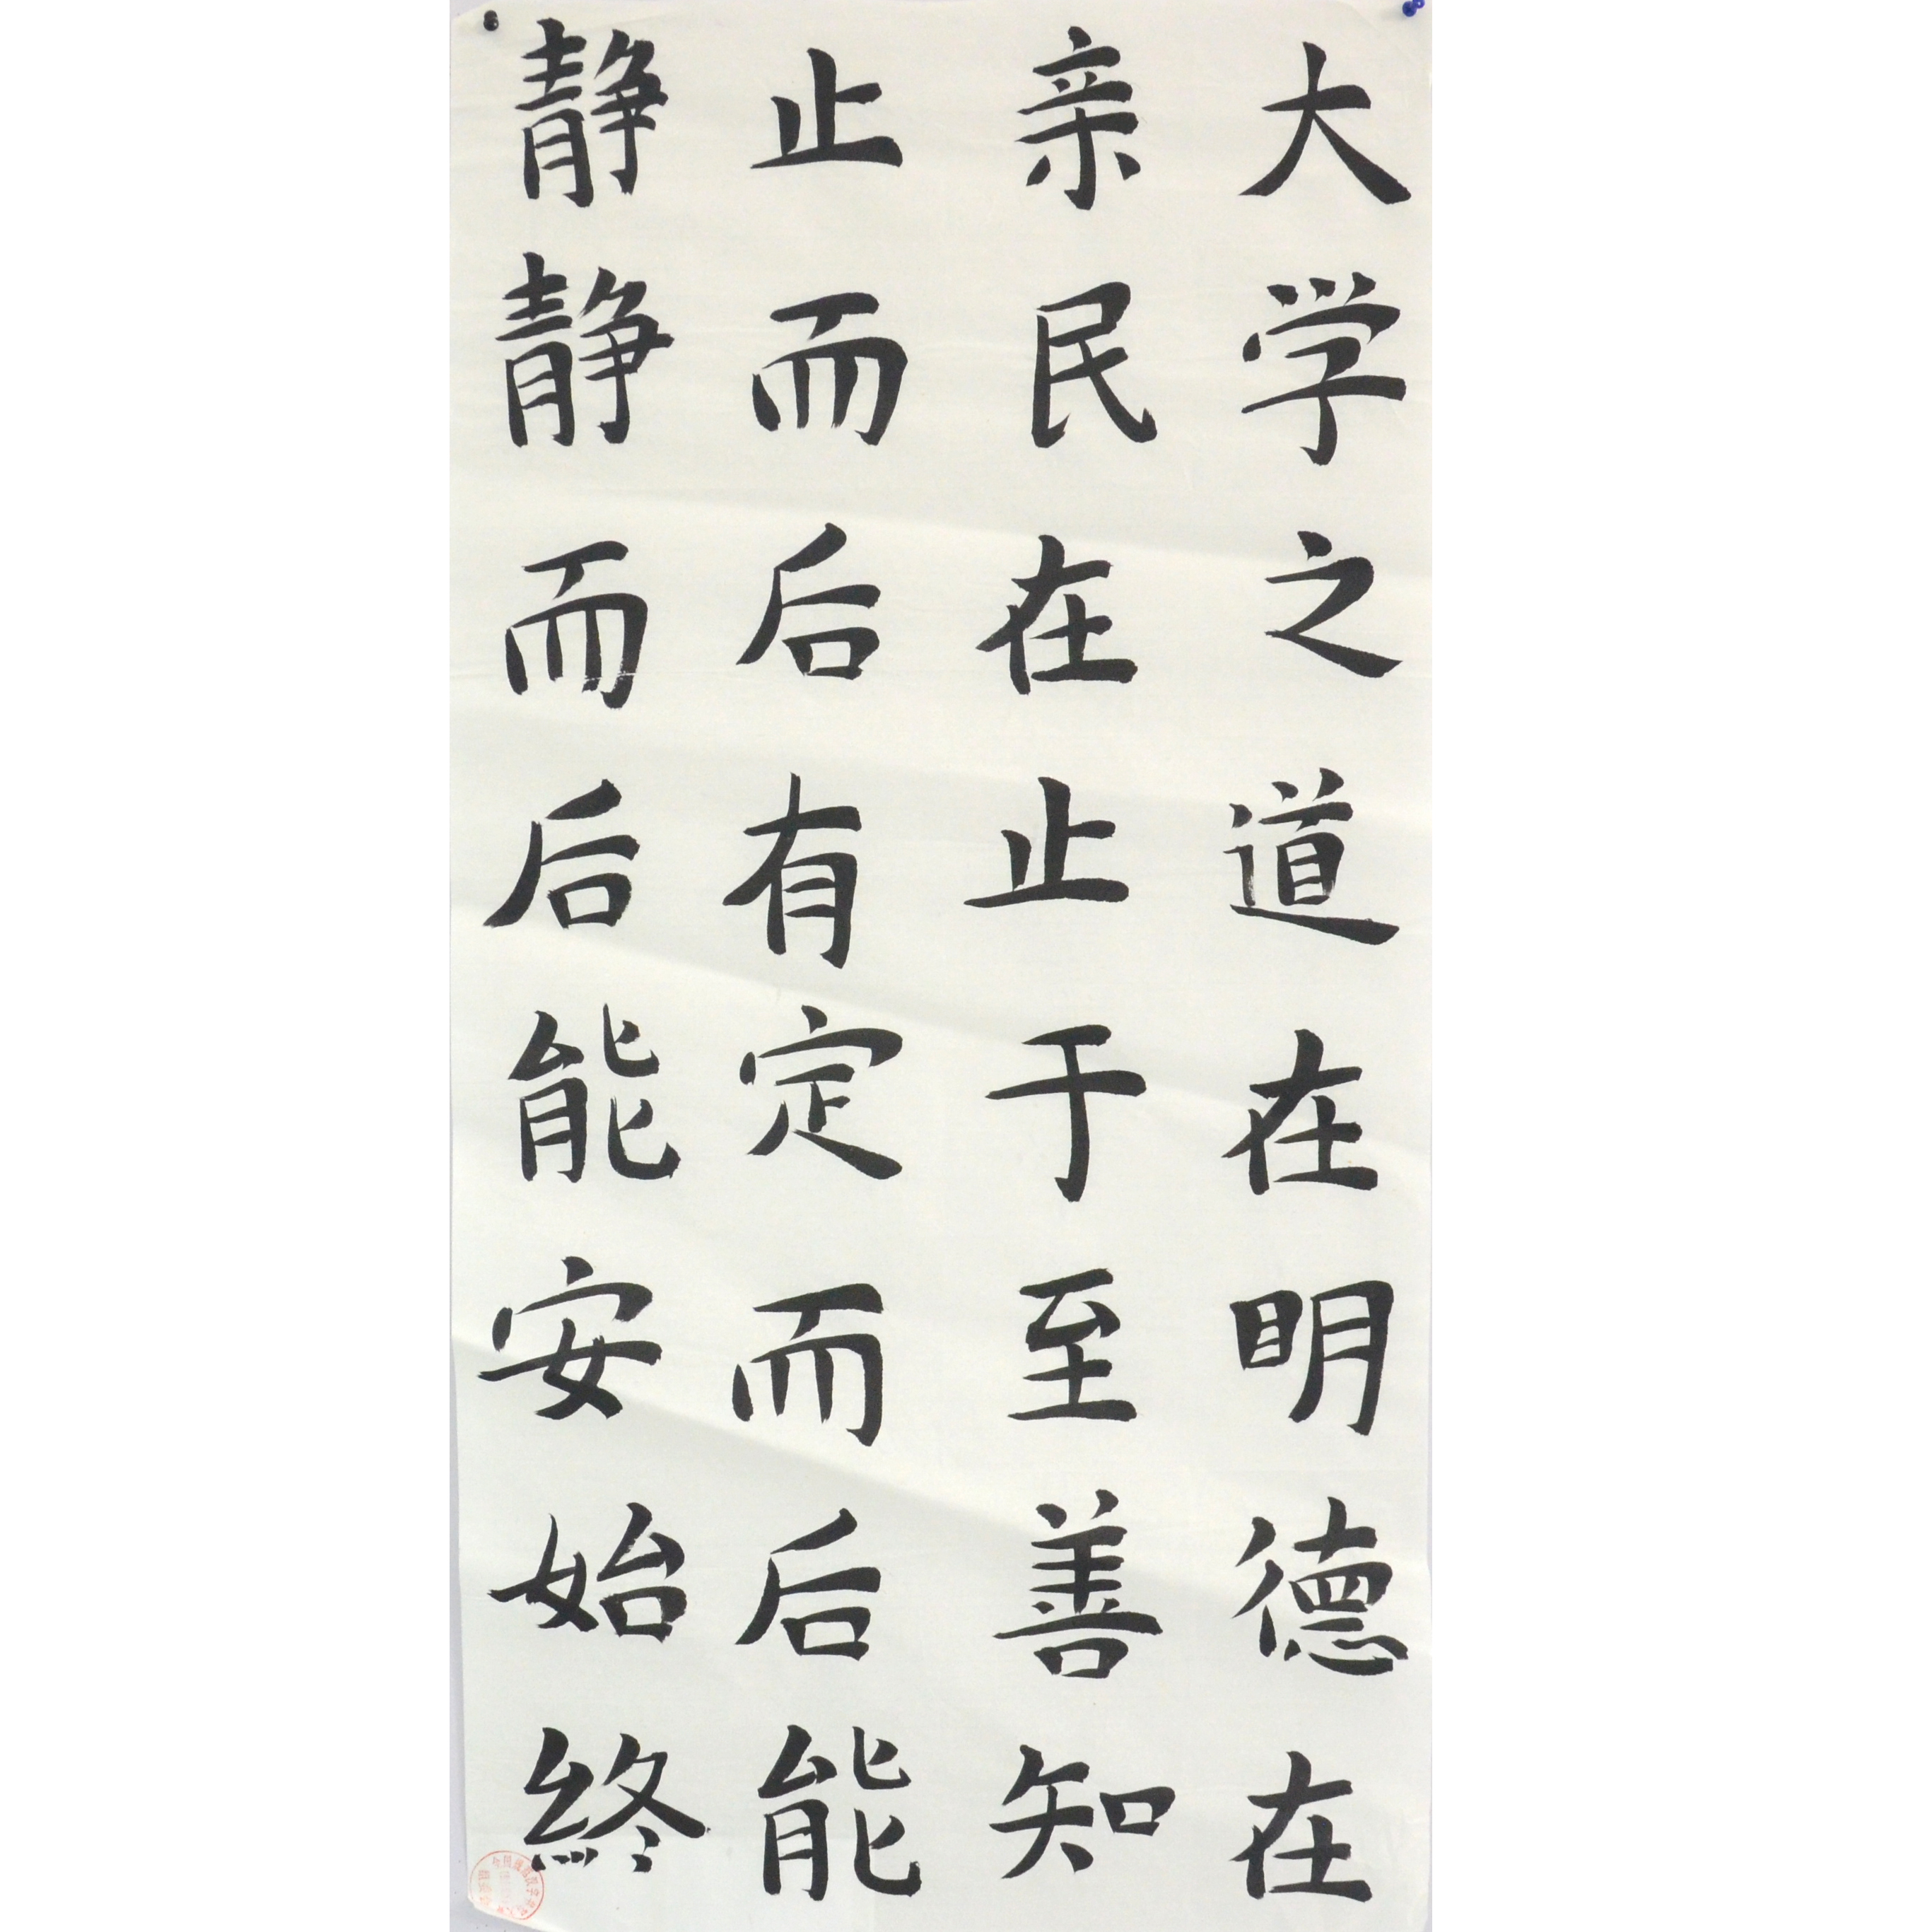 大学之道在明德在
亲民在止于至善知
止而后有定而后能
静静而后能安始終